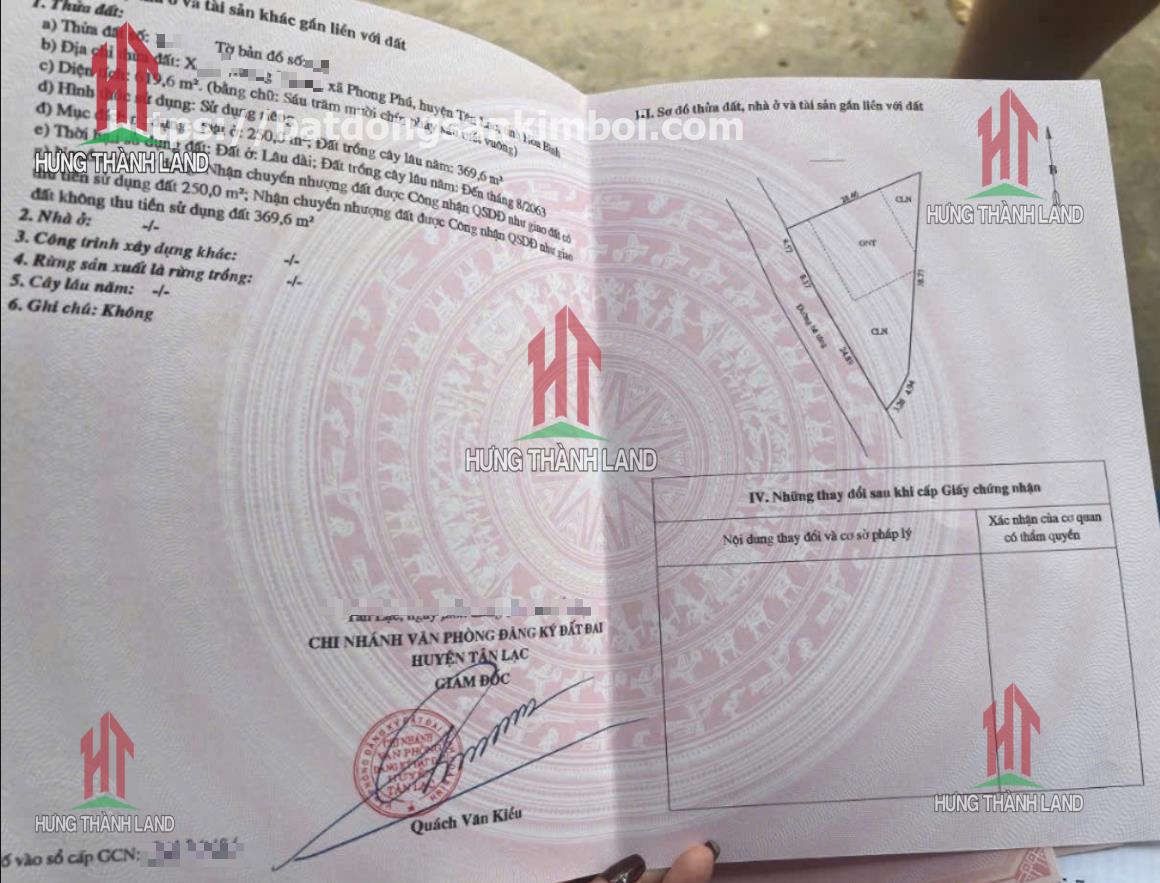 ở và tài sản khác gắn liền với đất
1. Thửa đất:
a) Thửa đất số: Tờ bản đồ số:
b) Địa chỉ thửa đất: X xã Phong Phú, huyện Tân Lạc, tỉnh Hòa Bình
c) Diện tích: 619,6 m². (bằng chữ: Sáu trăm mười chín phẩy sáu mét vuông)
d) Hình thức sử dụng: Sử dụng riêng
đ) Mục đích sử dụng: Đất ở: 250,0 m²; Đất trồng cây lâu năm: 369,6 m²
e) Thời hạn sử dụng đất: Đất ở: Lâu dài; Đất trồng cây lâu năm: Đến tháng 8/2063
Nhận chuyển nhượng đất được Công nhận QSDĐ như giao đất có
thu tiền sử dụng đất 250,0 m²; Nhận chuyển nhượng đất được Công nhận QSDĐ như giao
đất không thu tiền sử dụng đất 369,6 m²
2. Nhà ở: -/-
3. Công trình xây dựng khác: -/-
4. Rừng sản xuất là rừng trồng: -/-
5. Cây lâu năm: -/-
6. Ghi chú: Không
CHI NHÁNH VĂN PHÒNG ĐĂNG KÝ ĐẤT ĐAI
HUYỆN TÂN LẠC
GIÁM ĐỐC
CHI NHÁNH
VĂN PHÒNG
ĐĂNG KÝ ĐẤT ĐAI
HUYỆN
TÂN LẠC
Quách Văn Kiều
số vào sổ cấp GCN:
III. Sơ đồ thửa đất, nhà ở và tài sản gắn liền với đất
B
CLN
ONT
CLN
4.57
8.37
24.89
4.94
3.26
Đường bê tông
IV. Những thay đổi sau khi cấp Giấy chứng nhận
Nội dung thay đổi và cơ sở pháp lý
Xác nhận của cơ quan
có thẩm quyền
https://batdongsankimboi.com
HƯNG THÀNH LAND
HƯNG THÀNH LAND
HƯNG THÀNH LAND
HƯNG THÀNH LAND
HƯNG THÀNH LAND